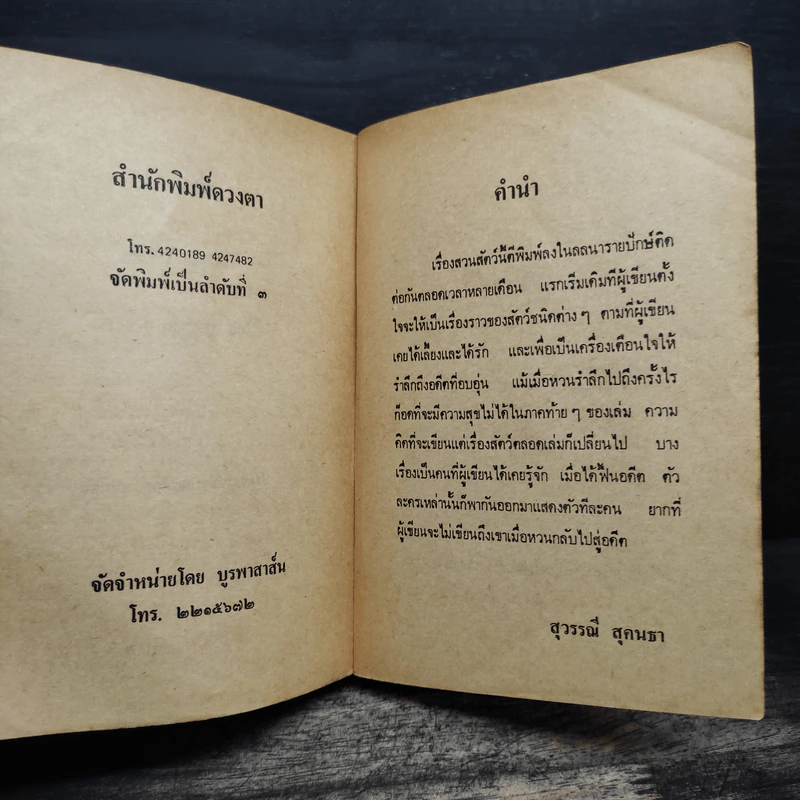 สำนักพิมพ์ดวงตา
โทร. 4240189 4247482
จัดพิมพ์เป็นลำดับที่ ๓
จัดจำหน่ายโดย บูรพาสาส์น
โทร. ๒๒๑๕๖๗๒
คำนำ
เรื่องสวนสัตว์นี้ตีพิมพ์ลงในลลนารายปักษ์ติด
ต่อกันตลอดเวลาหลายเดือน แรกเริ่มเดิมทีผู้เขียนตั้ง
ใจจะให้เป็นเรื่องราวของสัตว์ชนิดต่าง ๆ ตามที่ผู้เขียน
เคยได้เลี้ยงและได้รัก และเพื่อเป็นเครื่องเตือนใจให้
รำลึกถึงอดีตที่อบอุ่น แม้เมื่อหวนรำลึกไปถึงครั้งไร
ก็อดที่จะมีความสุขไม่ได้ในภาคท้าย ๆ ของเล่ม ความ
คิดที่จะเขียนแต่เรื่องสัตว์ตลอดเล่มก็เปลี่ยนไป บาง
เรื่องเป็นคนที่ผู้เขียนได้เคยรู้จัก เมื่อได้ฟื้นอดีต ตัว
ละครเหล่านั้นก็พากันออกมาแสดงตัวทีละคน ยากที่
ผู้เขียนจะไม่เขียนถึงเขาเมื่อหวนกลับไปสู่อดีต
สุวรรณี สุคนธา